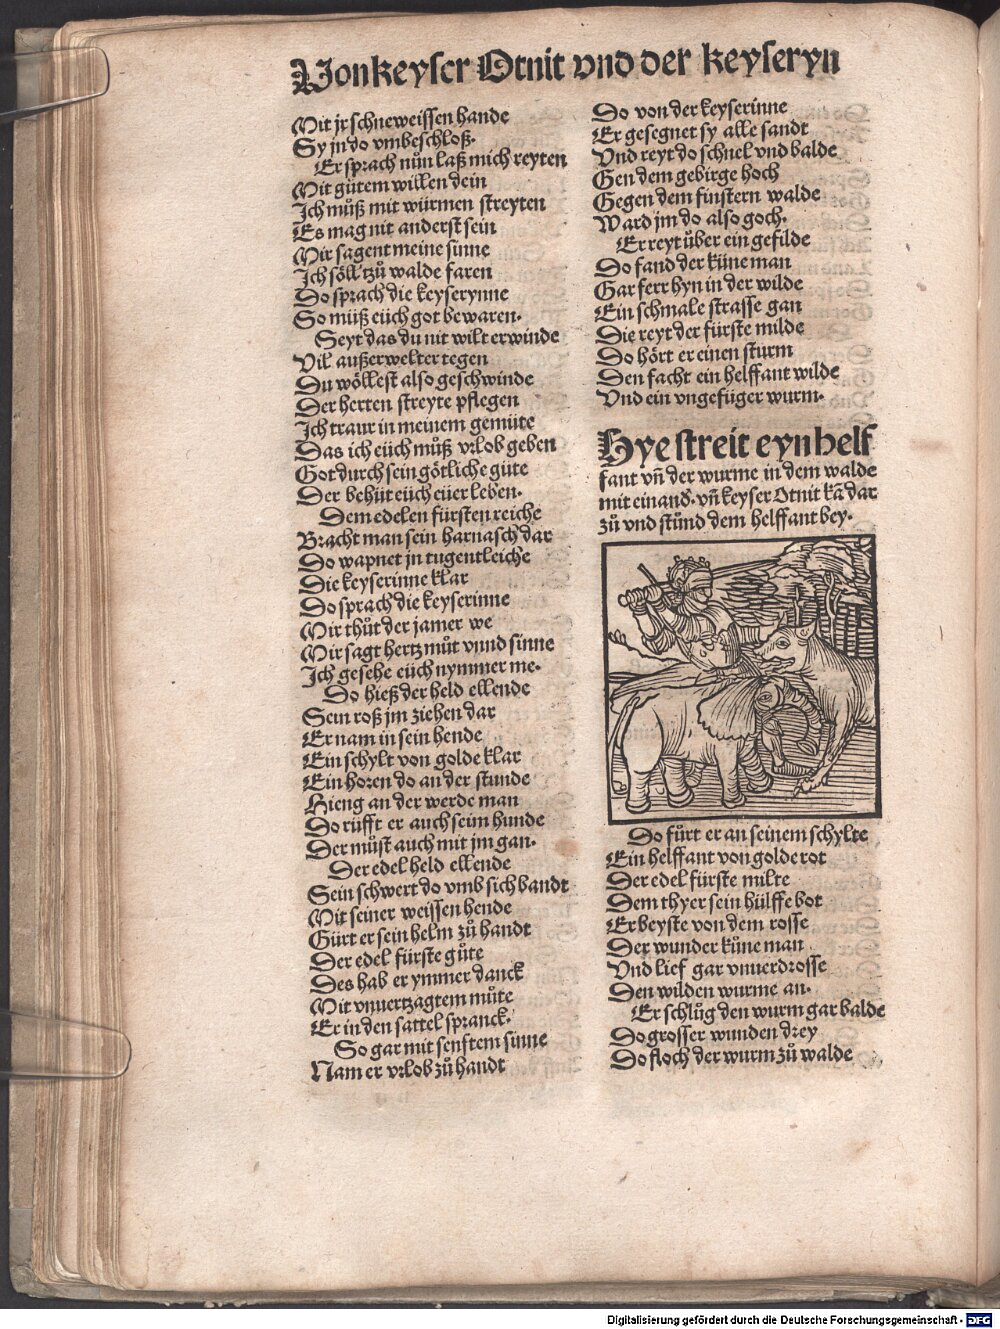 Von keyser Otnit vnd der keyseryn
Mit jr schneweissen hande
Sy jn do vmbeschloß.
Er sprach nůn laß mich reyten
Mit gůtem willen dein
Ich můß mit würmen streyten
Es mag nit anderst sein
Mir sagent meine sinne
Ich söll tzů walde faren
Do sprach die keyserynne
So můß eüch got bewaren.
Seyt das du nit wilt erwinde
Vil außerwelter tegen
Du wöllest also geschwinde
Der herten streyte pflegen
Ich traur in meinem gemüte
Das ich eüch můß vrlob geben
Got durch sein götliche güte
Der behüt eüch eüer leben.
Dem edelen fürsten reiche
Bracht man sein harnasch dar
Do wapnet jn tugentleiche
Die keyserinne klar
Do sprach die keyserinne
Mir thůt der jamer we
Mir sagt hertz můt vnnd sinne
Ich gesehe eüch nymmer me.
Do hieß der held ellende
Sein roß jm ziehen dar
Er nam in sein hende
Ein schylt von golde klar
Ein horen do an der stunde
Hieng an der werde man
Do rüfft er auch seim hunde
Der můst auch mit jm gan.
Der edel held ellende
Sein schwert do vmb sich bandt
Mit seiner weissen hende
Gürt er sein helm zů handt
Der edel fürste gůte
Des hab er ymmer danck
Mit vnuertzagtem můte
Er in den sattel spranck.
So gar mit senftem sinne
Nam er vrlob zů handt
Do von der keyserinne
Er gesegnet sy alle sandt
Vnd reyt do schnel vnd balde
Gen dem gebirge hoch
Gegen dem finstern walde
Ward jm do also goch.
Er reyt über ein gefilde
Do fand der küne man
Gar ferr hyn in der wilde
Ein schmale strasse gan
Die reyt der fürste milde
Do hört er einen sturm
Den facht ein helffant wilde
Vnd ein vngefüger wurm.
Hye streit eyn helf
fant vñ der wurme in dem walde
mit einand. vñ keyser Otnit kā dar
zů vnd stůnd dem helffant bey.
Do fůrt er an seinem schylte
Ein helffant von golde rot
Der edel fürste milte
Dem thyer sein hülffe bot
Er beyste von dem rosse
Der wunder küne man
Vnd lief gar vnuerdrosse
Den wilden wurme an.
Er schlůg den wurm gar balde
Do grosser wunden drey
Do floch der wurm zů walde
Digitalisierung gefördert durch die Deutsche Forschungsgemeinschaft - DFG